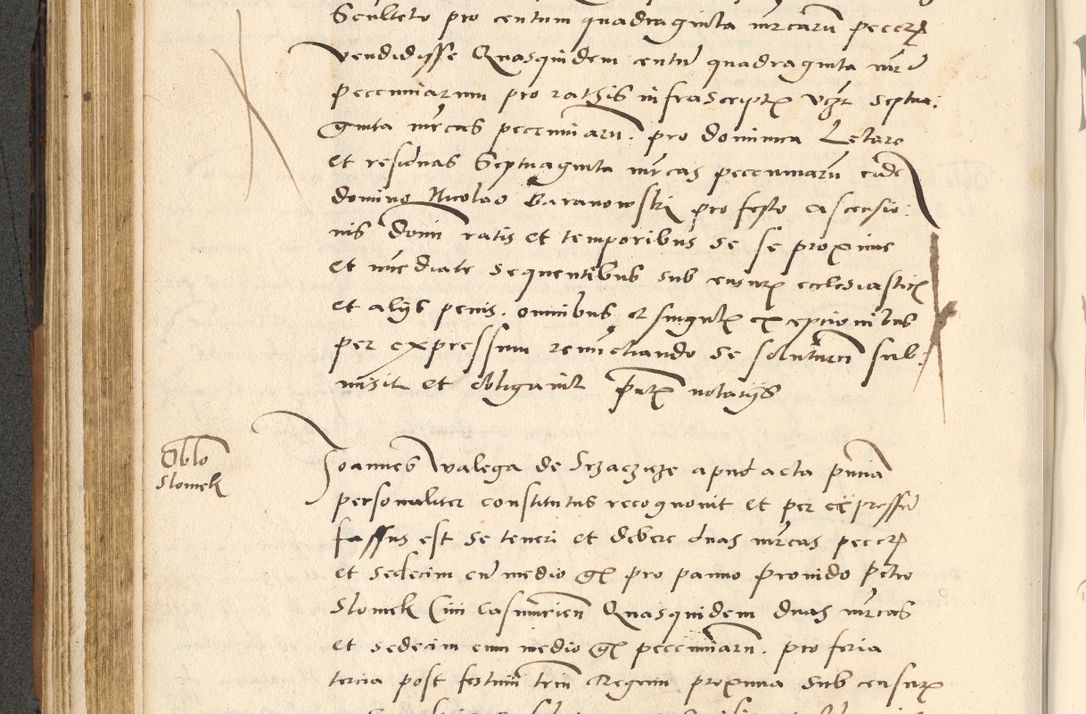 Sculteto pro centum quadraginta mrcarum peccer
vendidisse Quasquidem centum quadraginta mrc
pecuniarum pro rathis infrascriptis vzt septua:
ginta mrcas pecuniarum. pro dominica Letare
et residuas Septuaginta mrcas pecuniarum eidem
domino Nicolao Baranowski pro festo ascensio:
nis domini ratis et temporibus se se proxime
et immediate sequentibus sub censuris ecclesiasticis
et alijs penis. omnibus et singulis exceptionibus
per expressum renunctiando se soluturum sub:
misit et obligavit pntibus notarijs
Oblo
Slomek
Joannes Walega de Srzaczicze apud acta pnna
personaliter constitutus recognovit et per expressum
fassus est se teneri et debere duas mrcas peccer
et sedecim cum medio gr pro panno provido Petro
Slomek Civi Casimirien Quasquidem duas mrcas
et sedecim cum medio gr pecuniarum. pro feria
tercia post festum trium Regum proxima sub censuris